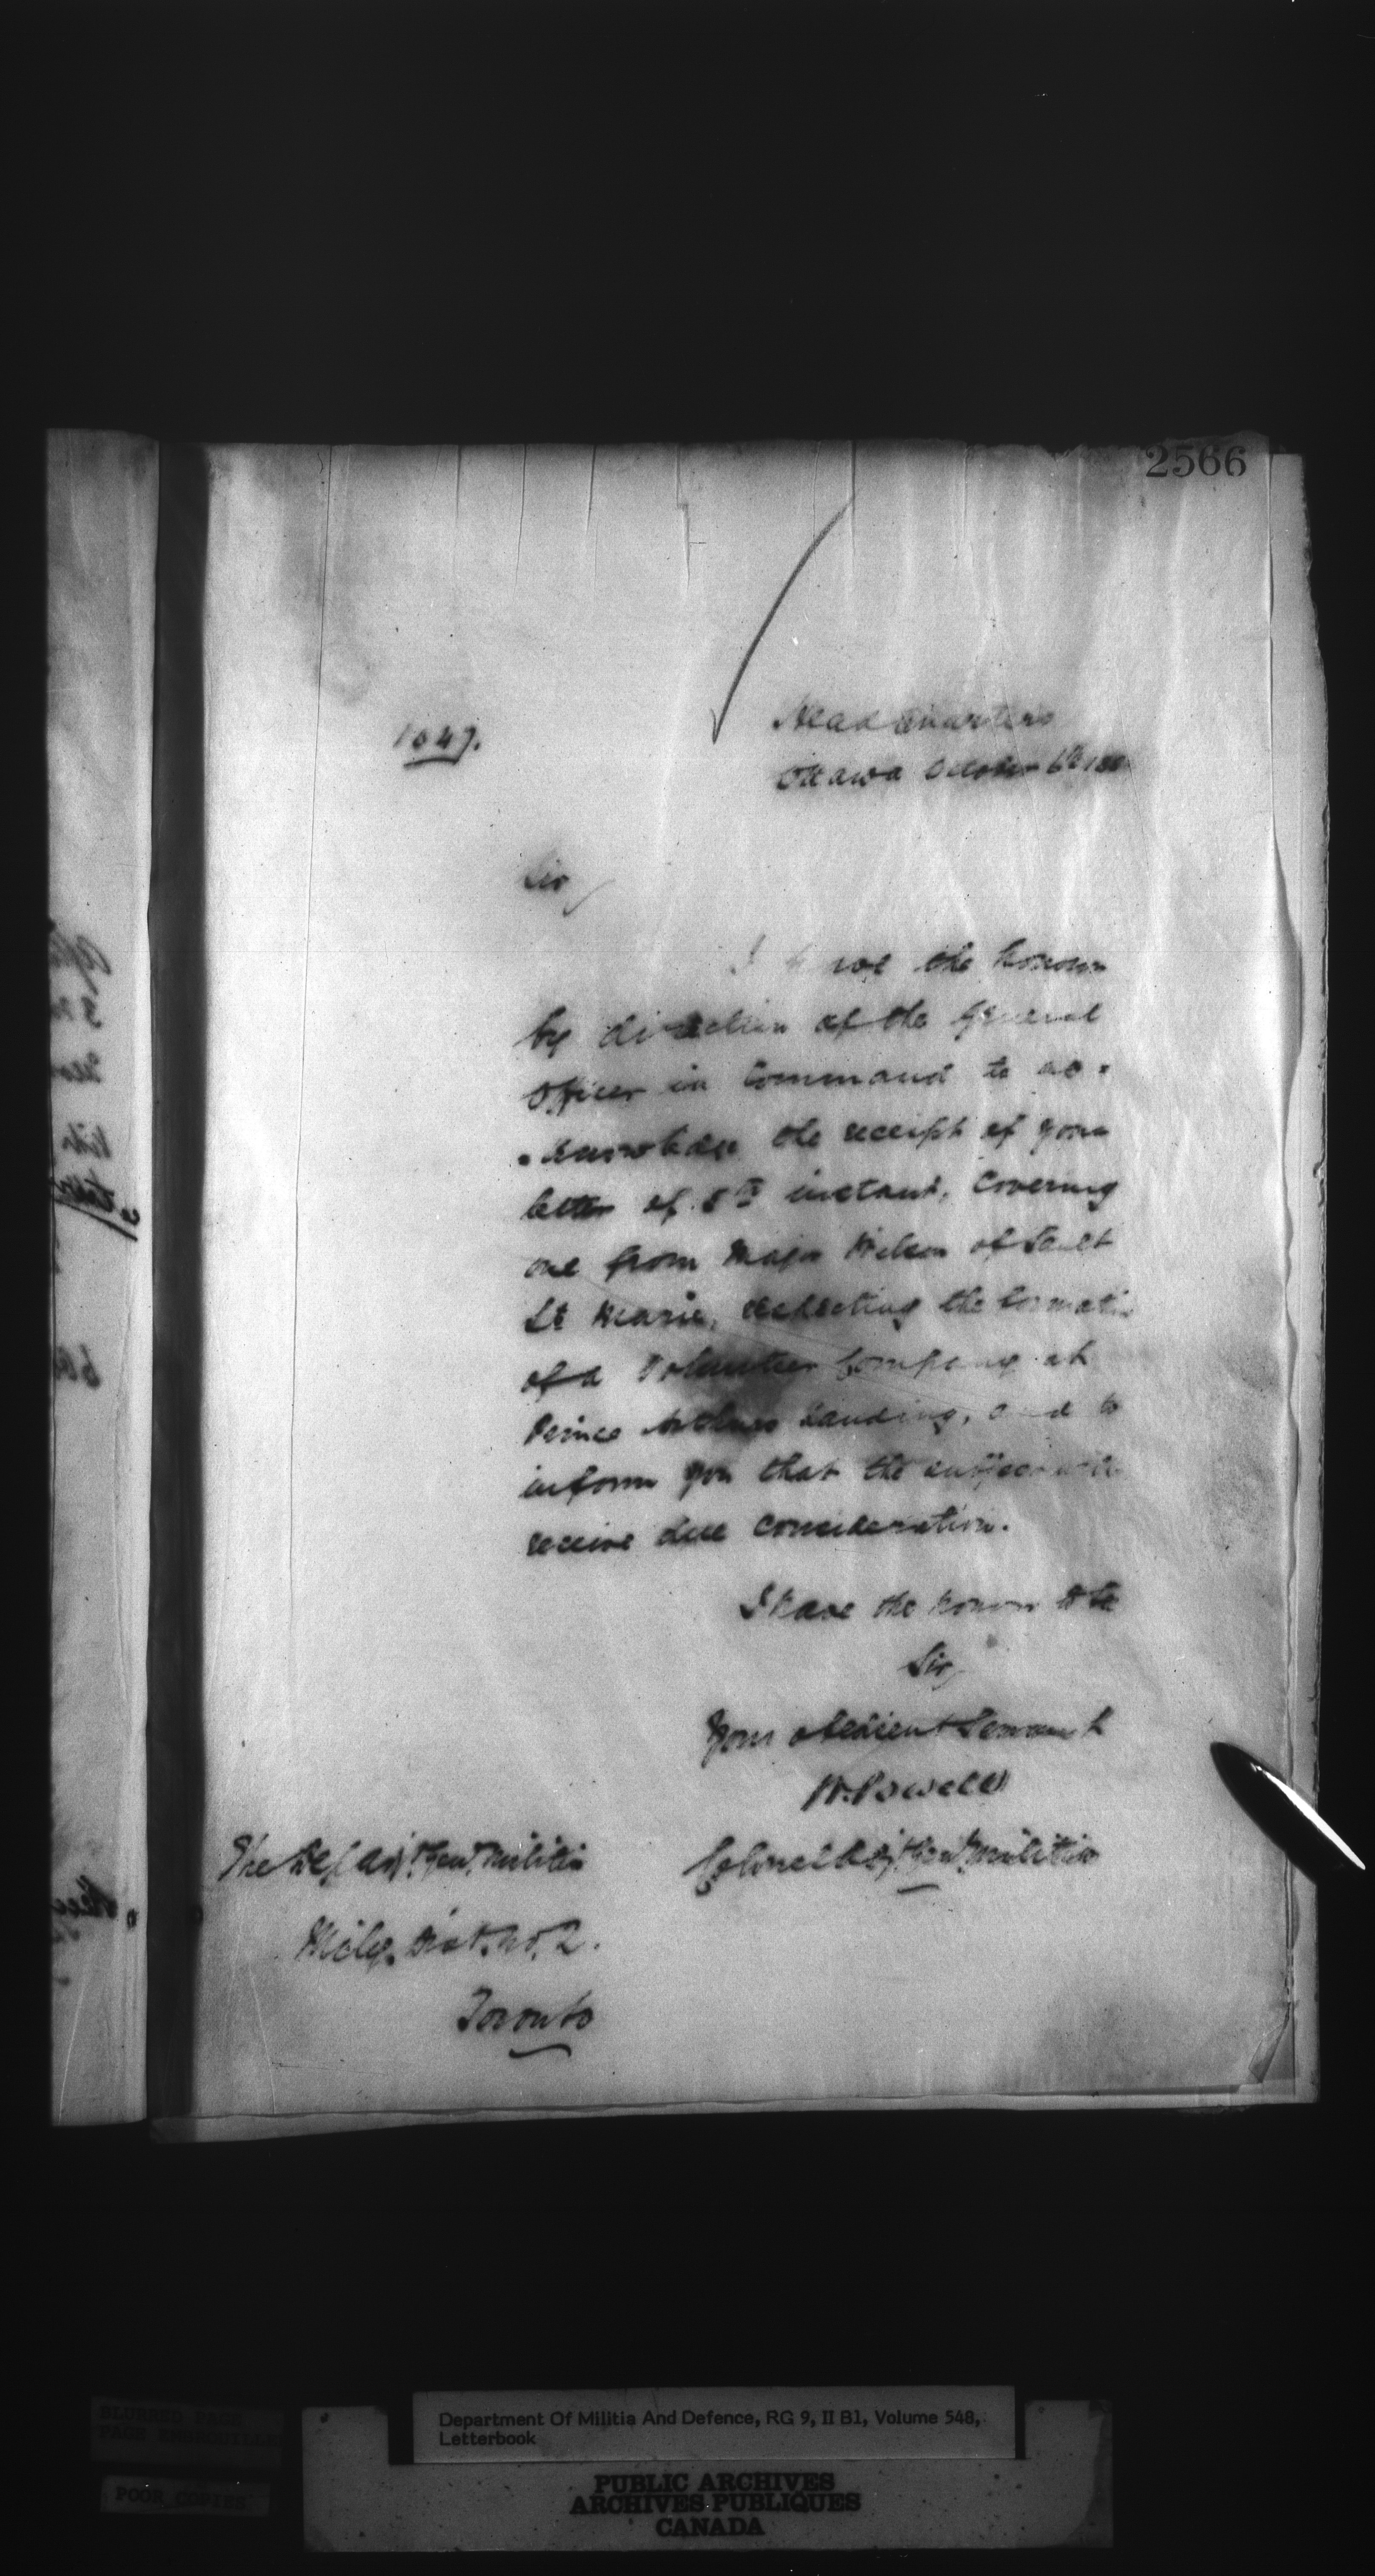 2566
1049.
Head Quarters
Ottawa October 6th 188
Sir,
I have the honour
by direction of the General
Officer in Command to ac-
-knowledge the receipt of your
letter of 5th instant, covering
one from Major Wilson of Sault
St Marie, respecting the formation
of a Volunteer Company at
Prince Arthurs Landing, and to
inform you that the subject will
receive due consideration.
I have the honour to be
Sir,
Your obedient Servant
W. Powell
Colonel Adjt. Genl. Militia
The Dep. Adjt. Genl. Militia
Mily. Dist. No. 2.
Toronto
BLURRED PAGE
PAGE EMBROUILLEE
POOR COPIES
Department Of Militia And Defence, RG 9, II B1, Volume 548,
Letterbook
PUBLIC ARCHIVES
ARCHIVES PUBLIQUES
CANADA